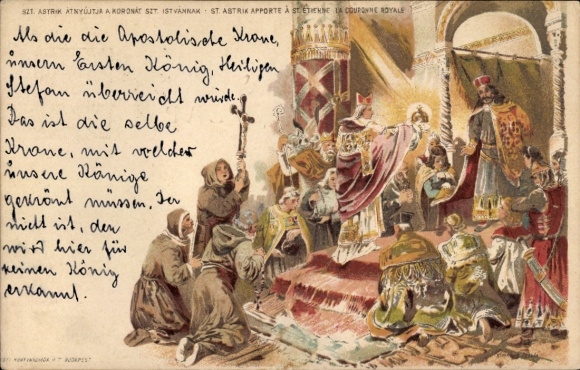 SZT. ASTRIK ÁTNYÚJTJA A KORONÁT SZT. ISTVÁNNAK · ST. ASTRIK APPORTE À ST. ETIENNE LA COURONNE ROYALE
Als die die Apostolische Krone,
unsern Ersten König, Heiligen
Stefan überreicht wurde.
Das ist die selbe
Krone, mit welcher
unsere Könige
gekrönt müssen. Der
nicht ist, den
wird hier für
keinen König
erkannt.
BUDAPEST